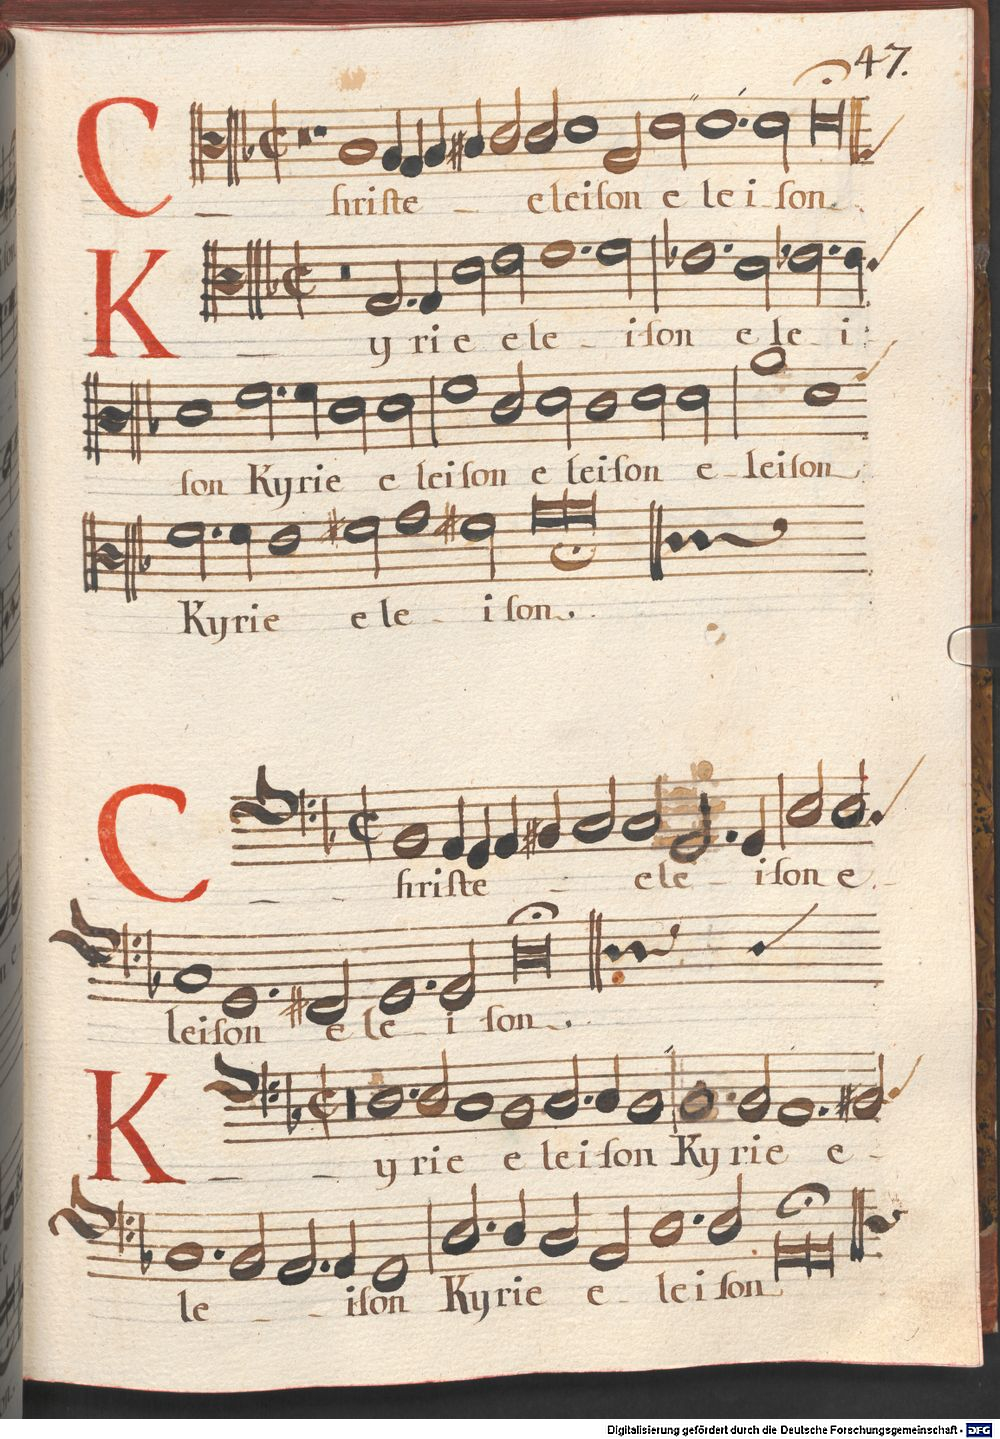 47.
Christe eleison eleison
Kyrie eleison elei
son Kyrie eleison eleison eleison
Kyrie eleison.
Christe eleison e
leison eleison.
Kyrie eleison Kyrie e
leison Kyrie eleison
Digitalisierung gefördert durch die Deutsche Forschungsgemeinschaft - DFG